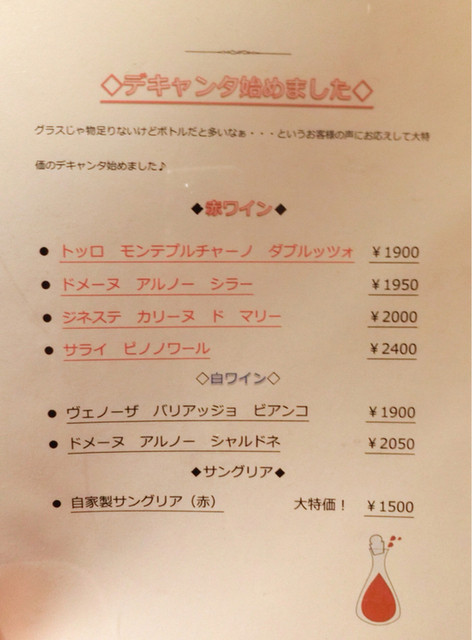 ◇デキャンタ始めました◇
グラスじゃ物足りないけどボトルだと多いなぁ・・・というお客様の声にお応えして大特
価のデキャンタ始めました♪
◆赤ワイン◆
● トッロ モンテプルチャーノ ダブルッツォ ￥1900
● ドメーヌ アルノー シラー ￥1950
● ジネステ カリーヌ ド マリー ￥2000
● サライ ピノノワール ￥2400
◇白ワイン◇
● ヴェノーザ バリアッジョ ビアンコ ￥1900
● ドメーヌ アルノー シャルドネ ￥2050
◆サングリア◆
● 自家製サングリア（赤） 大特価！ ￥1500